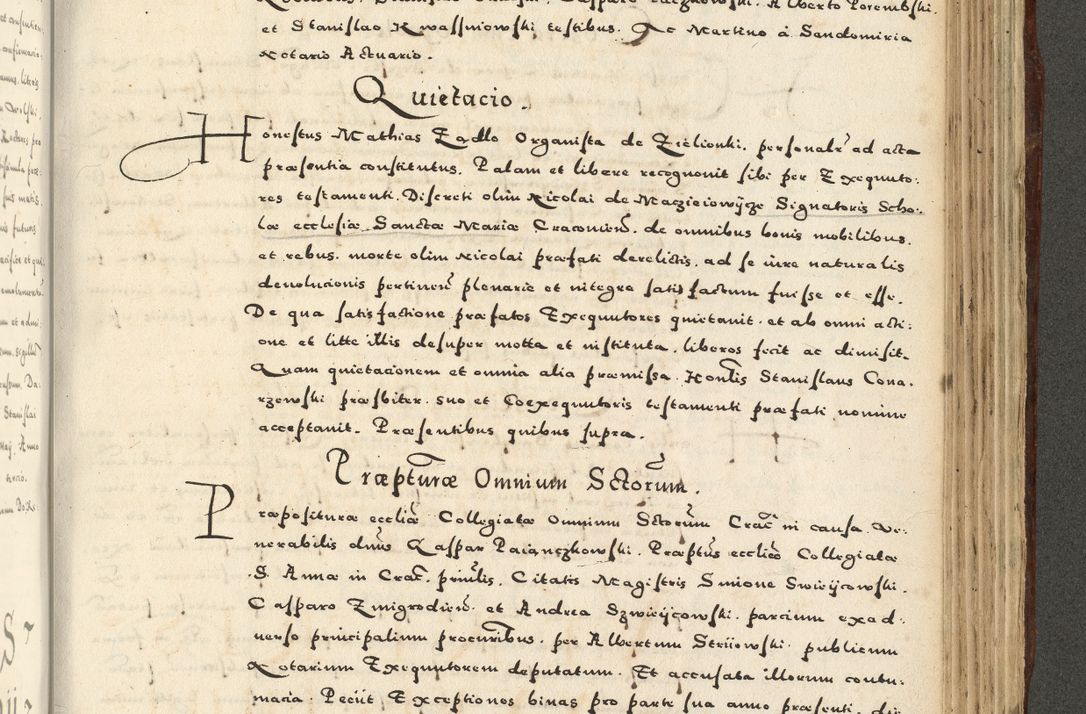 et Stanislao Kwassniowski testibus. Ac Martino à Sandomiria
Notario Actuario.
Quietacio.
Honestus Mathias Zadlo Organista de Zielionki. personalr ad acta
præsentia constitutus. Palam et libere recognouit sibi per Exequuto:
res testamenti. Discreti olim Nicolai de Maczieiowÿcze Signatoris Scho:
læ ecclesiæ Sanctæ Mariæ Cracouien. de omnibus bonis mobilibus.
et rebus. morte olim Nicolai præfati derelictis. ad se iure naturalis
deuolucionis pertinen plenarie et integre satisfactum fuisse et esse.
De qua satisfactione præfatos Exequutores quietauit. et ab omni acti:
one et litte illis desuper motta et instituta. liberos fecit ac dimisit.
Quam quietacionem et omnia alia præmissa. Honlis Stanislaus Cona.
rzewski præsbiter. suo et Coexequutoris testamenti præfati nomine
acceptauit. Præsentibus quibus supra.
Præpturæ Omnium Sctorum.
Præposituræ eccliæ Collegiatæ Omnium Sctorum Crac in causa Ve:
nerabilis dnus Gaspar Paianczkowski. Præptus eccliæ Collegiatæ
S. Annæ in Crac. priulis. Citatis Magistris Simone Swieÿcowski.
Casparo Zmigrodien. et Andrea Szwieÿcowski. parcium ex ad:
uerso principalium procuribus. per Albertum Striiowski. publicum
Notarium Exequutorem deputatum. Et accusata illorum contu:
macia. Peciit Exceptiones binas pro parte sua anno præsenti.